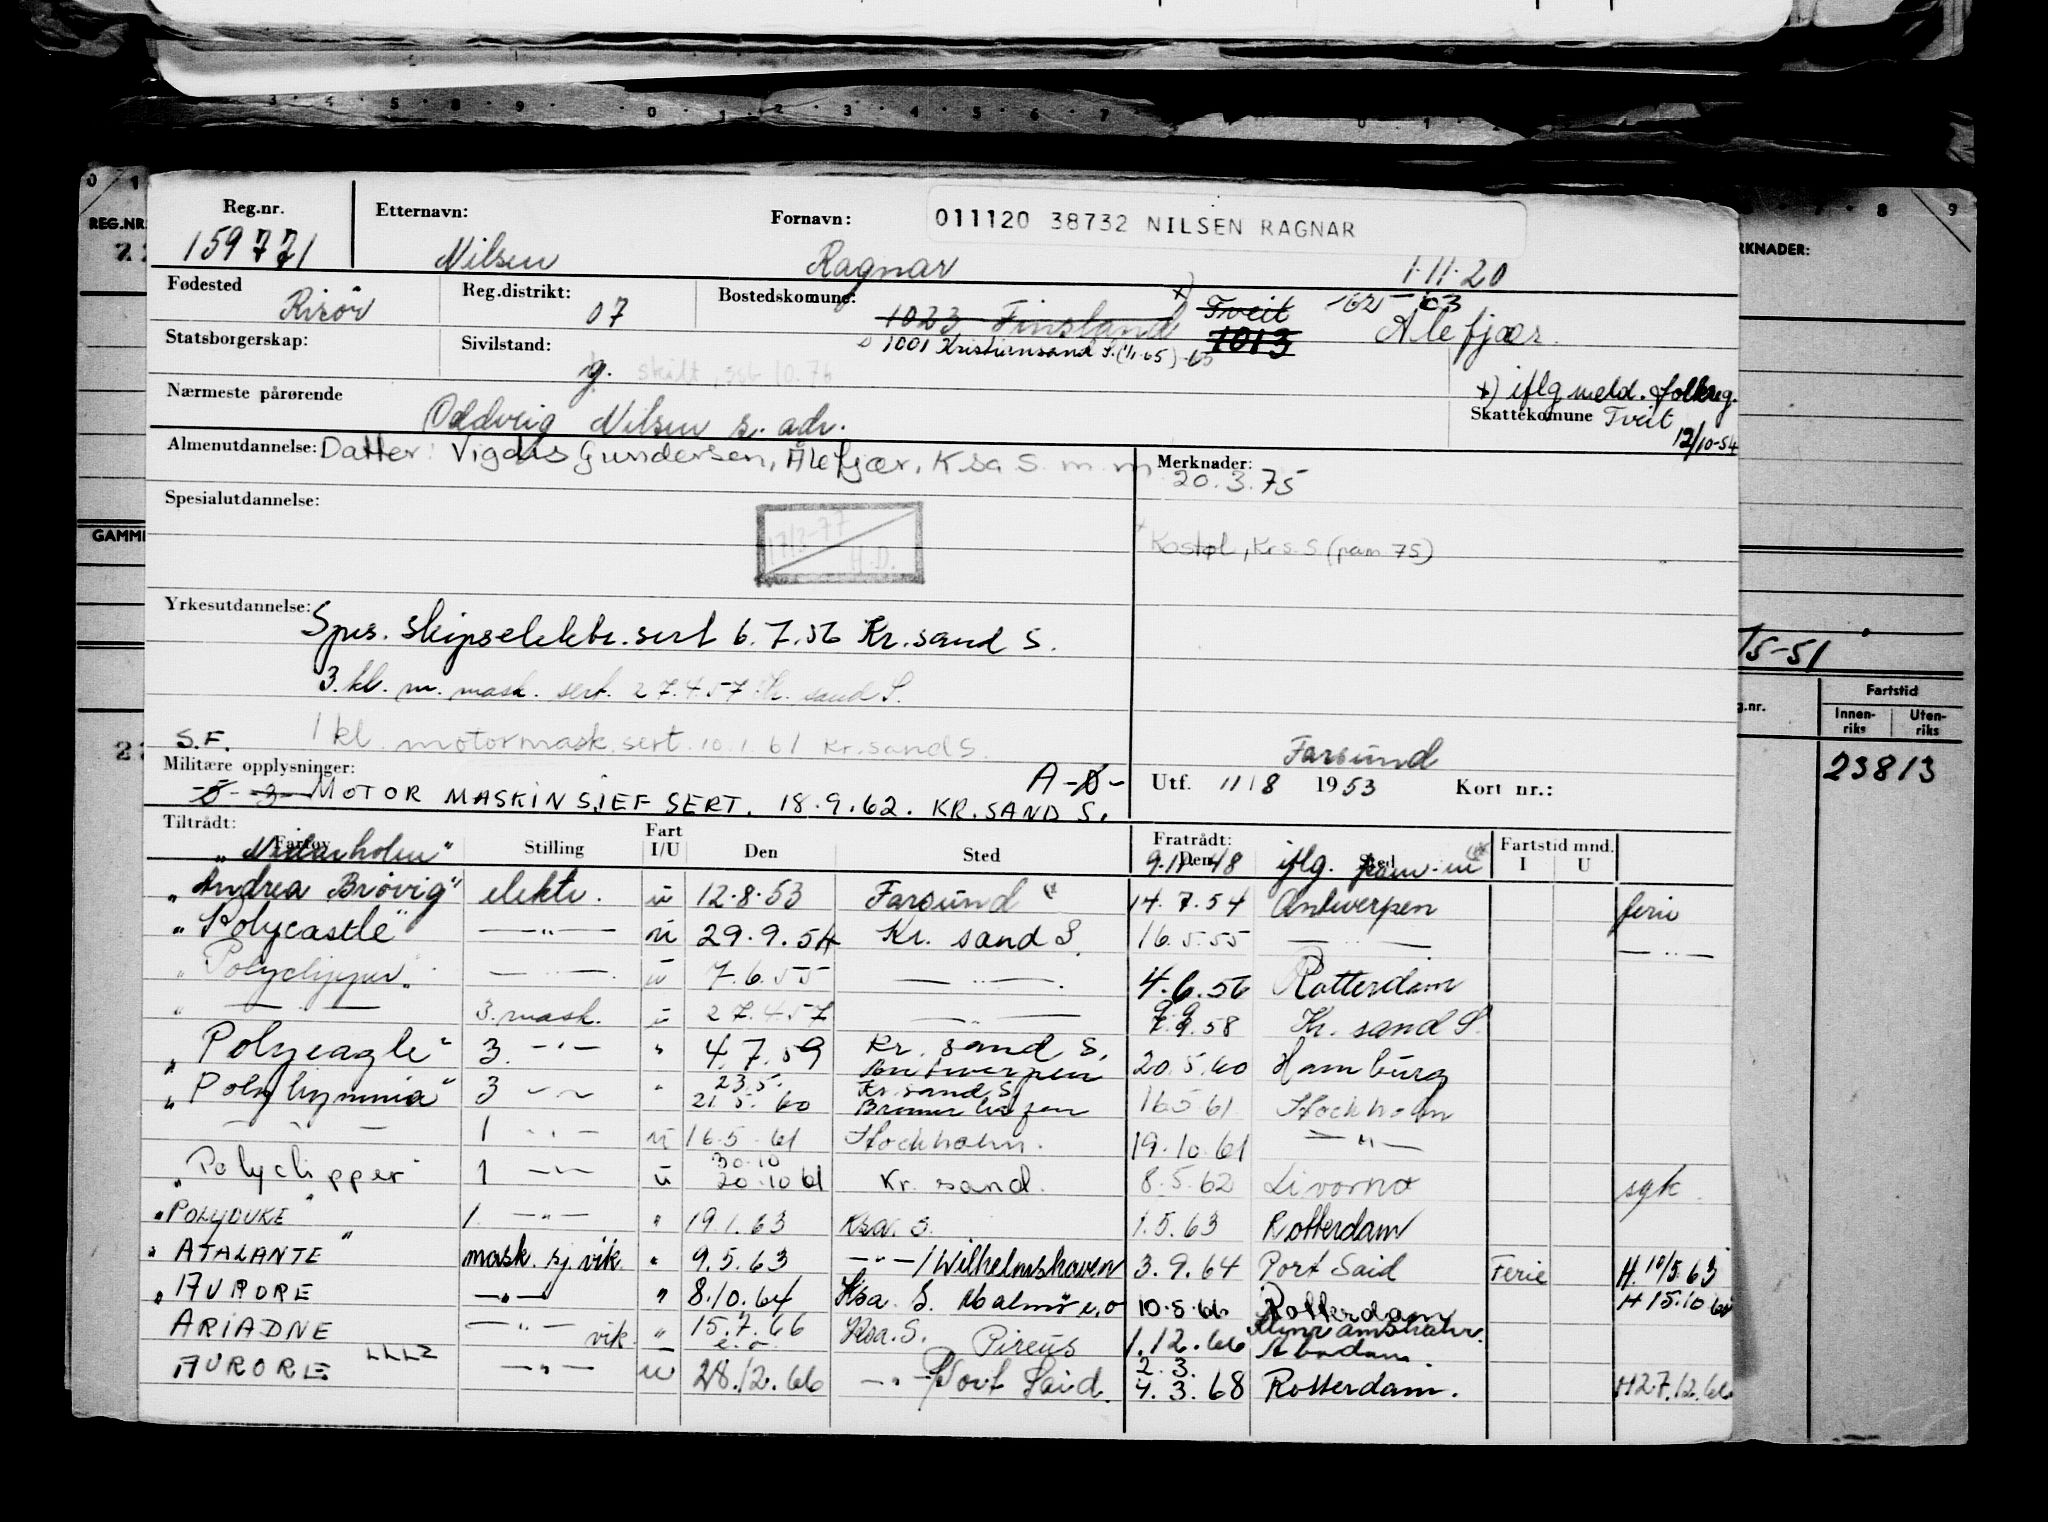 Reg.nr. Etternavn: Fornavn: 011120 38732 NILSEN RAGNAR
159771 Nilsen Ragnar 1.11.20
Fødested Reg.distrikt: Bostedskomune:
Risör 07 1023 Finsland *) Tveit 1013 Ålefjær.
Statsborgerskap: Sivilstand: 1001 Kristiansand S. (1/1-65)
g. skilt
*) iflg meld. folkreg.
Nærmeste pårørende Skattekomune Tveit
Oddveig Nilsen s. adr. 12/10-54
Almenutdannelse: Datter: Vigdis Gundersen, Ålefjær, Ksa S. m.m Merknader:
20.3.75
Spesialutdannelse:
17/2-77
H.D.
Krs. S (pam 75)
Yrkesutdannelse:
Spes. skipselektr. sert 6.7.56 Kr.sand S.
3. kl. m. mask. sert. 27.4.57 Kr. sand S.
S.F. 1 kl. motormask. sert. 10.1.61 Kr.sand S.
Farsund
Militære opplysninger: A-0- Utf. 11/8 1953 Kort nr.:
MOTOR MASKINSJEF SERT. 18.9.62. KR.SAND S.
Tiltrådt: Fart Fratrådt: Fartstid mnd.
Fartøy Stilling I/U Den Sted Den Sted I U
"Nidarholm" 9.11.48 iflg.
"Andrea Brøvig" elektr. u 12.8.53 Farsund 14.7.54 Antwerpen ferie
"Polycastle" —"— u 29.9.54 Kr. sand S. 16.5.55 —"— —"—
"Polyclipper" —"— u 7.6.55 —"— 4.6.56 Rotterdam
" —"— 3. mask. u 27.4.57 —"— 9.9.58 Kr. sand S.
"Polyeagle" 3. —"— " 4.7.59 Kr. sand S. Antwerpen 20.5.60 Hamburg
"Polyhymnia" 3 —"— " 23.5. 21.5.60 Kr.sand S. Bremerhafen 16.5.61 Stockholm
—"— 1 —"— u 16.5.61 Stockholm. 19.10.61 —"—
"Polyclipper" 1 —"— u 30.10 20.10.61 Kr. sand. 8.5.62 Livorno syk.
"POLYDUKE" 1. —"— " 19.1.63 Ksa. S. 1.5.63 Rotterdam
"ATALANTE" mask. sj. vik. " 9.5.63 —"—/Wilhelmshaven 3.9.64 Port Said Ferie H.10/5.63
"AURORE —"— " 8.10.64 Ksa. S. Malmö e.o 10.5.66 Rotterdam H 15.10.64
ARIADNE —"— vik. " 15.7.66 e.o. Ksa. S. Pireus 1.12.66 Abadan.
AURORE LLLZ —"— u 28.12.66 —"— Port Said. 2.3. 4.3.68 Rotterdam. H 27.12.66
REG.NR.
GAMM
15-51
Fartstid
Innen-riks Uten-riks
23813